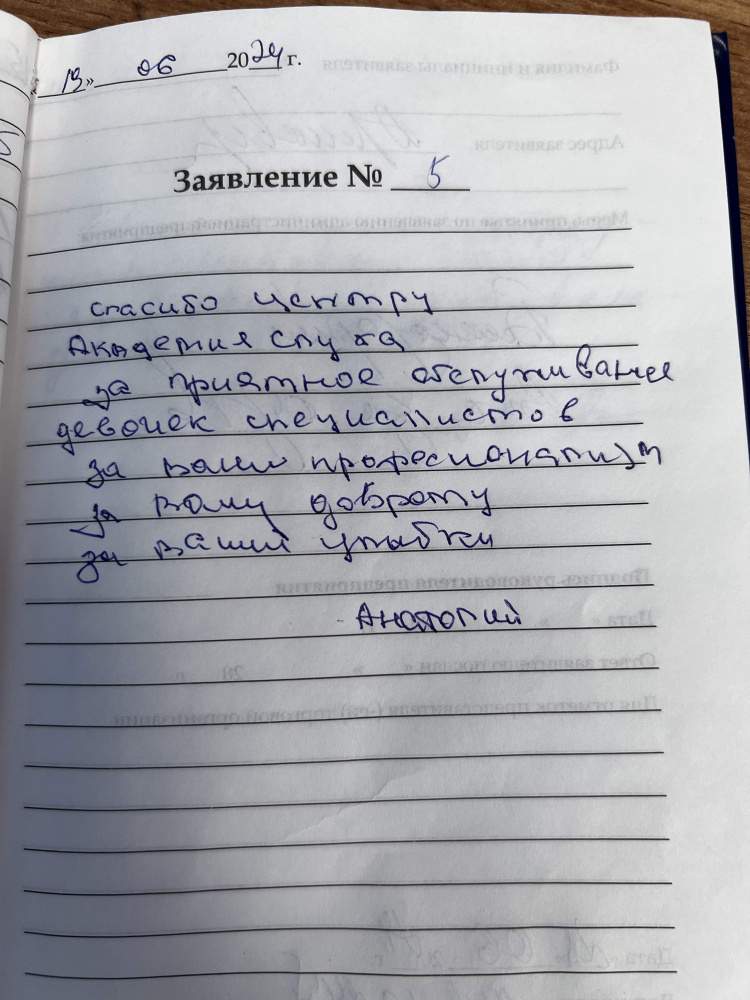 « 13 » 06 2024 г.
Заявление № 5
спасибо центру
Академия слуха
за приятное обслуживание
девочек специалистов
за ваш професионализм
за вашу доброту
за ваший улыбки
Анатолий